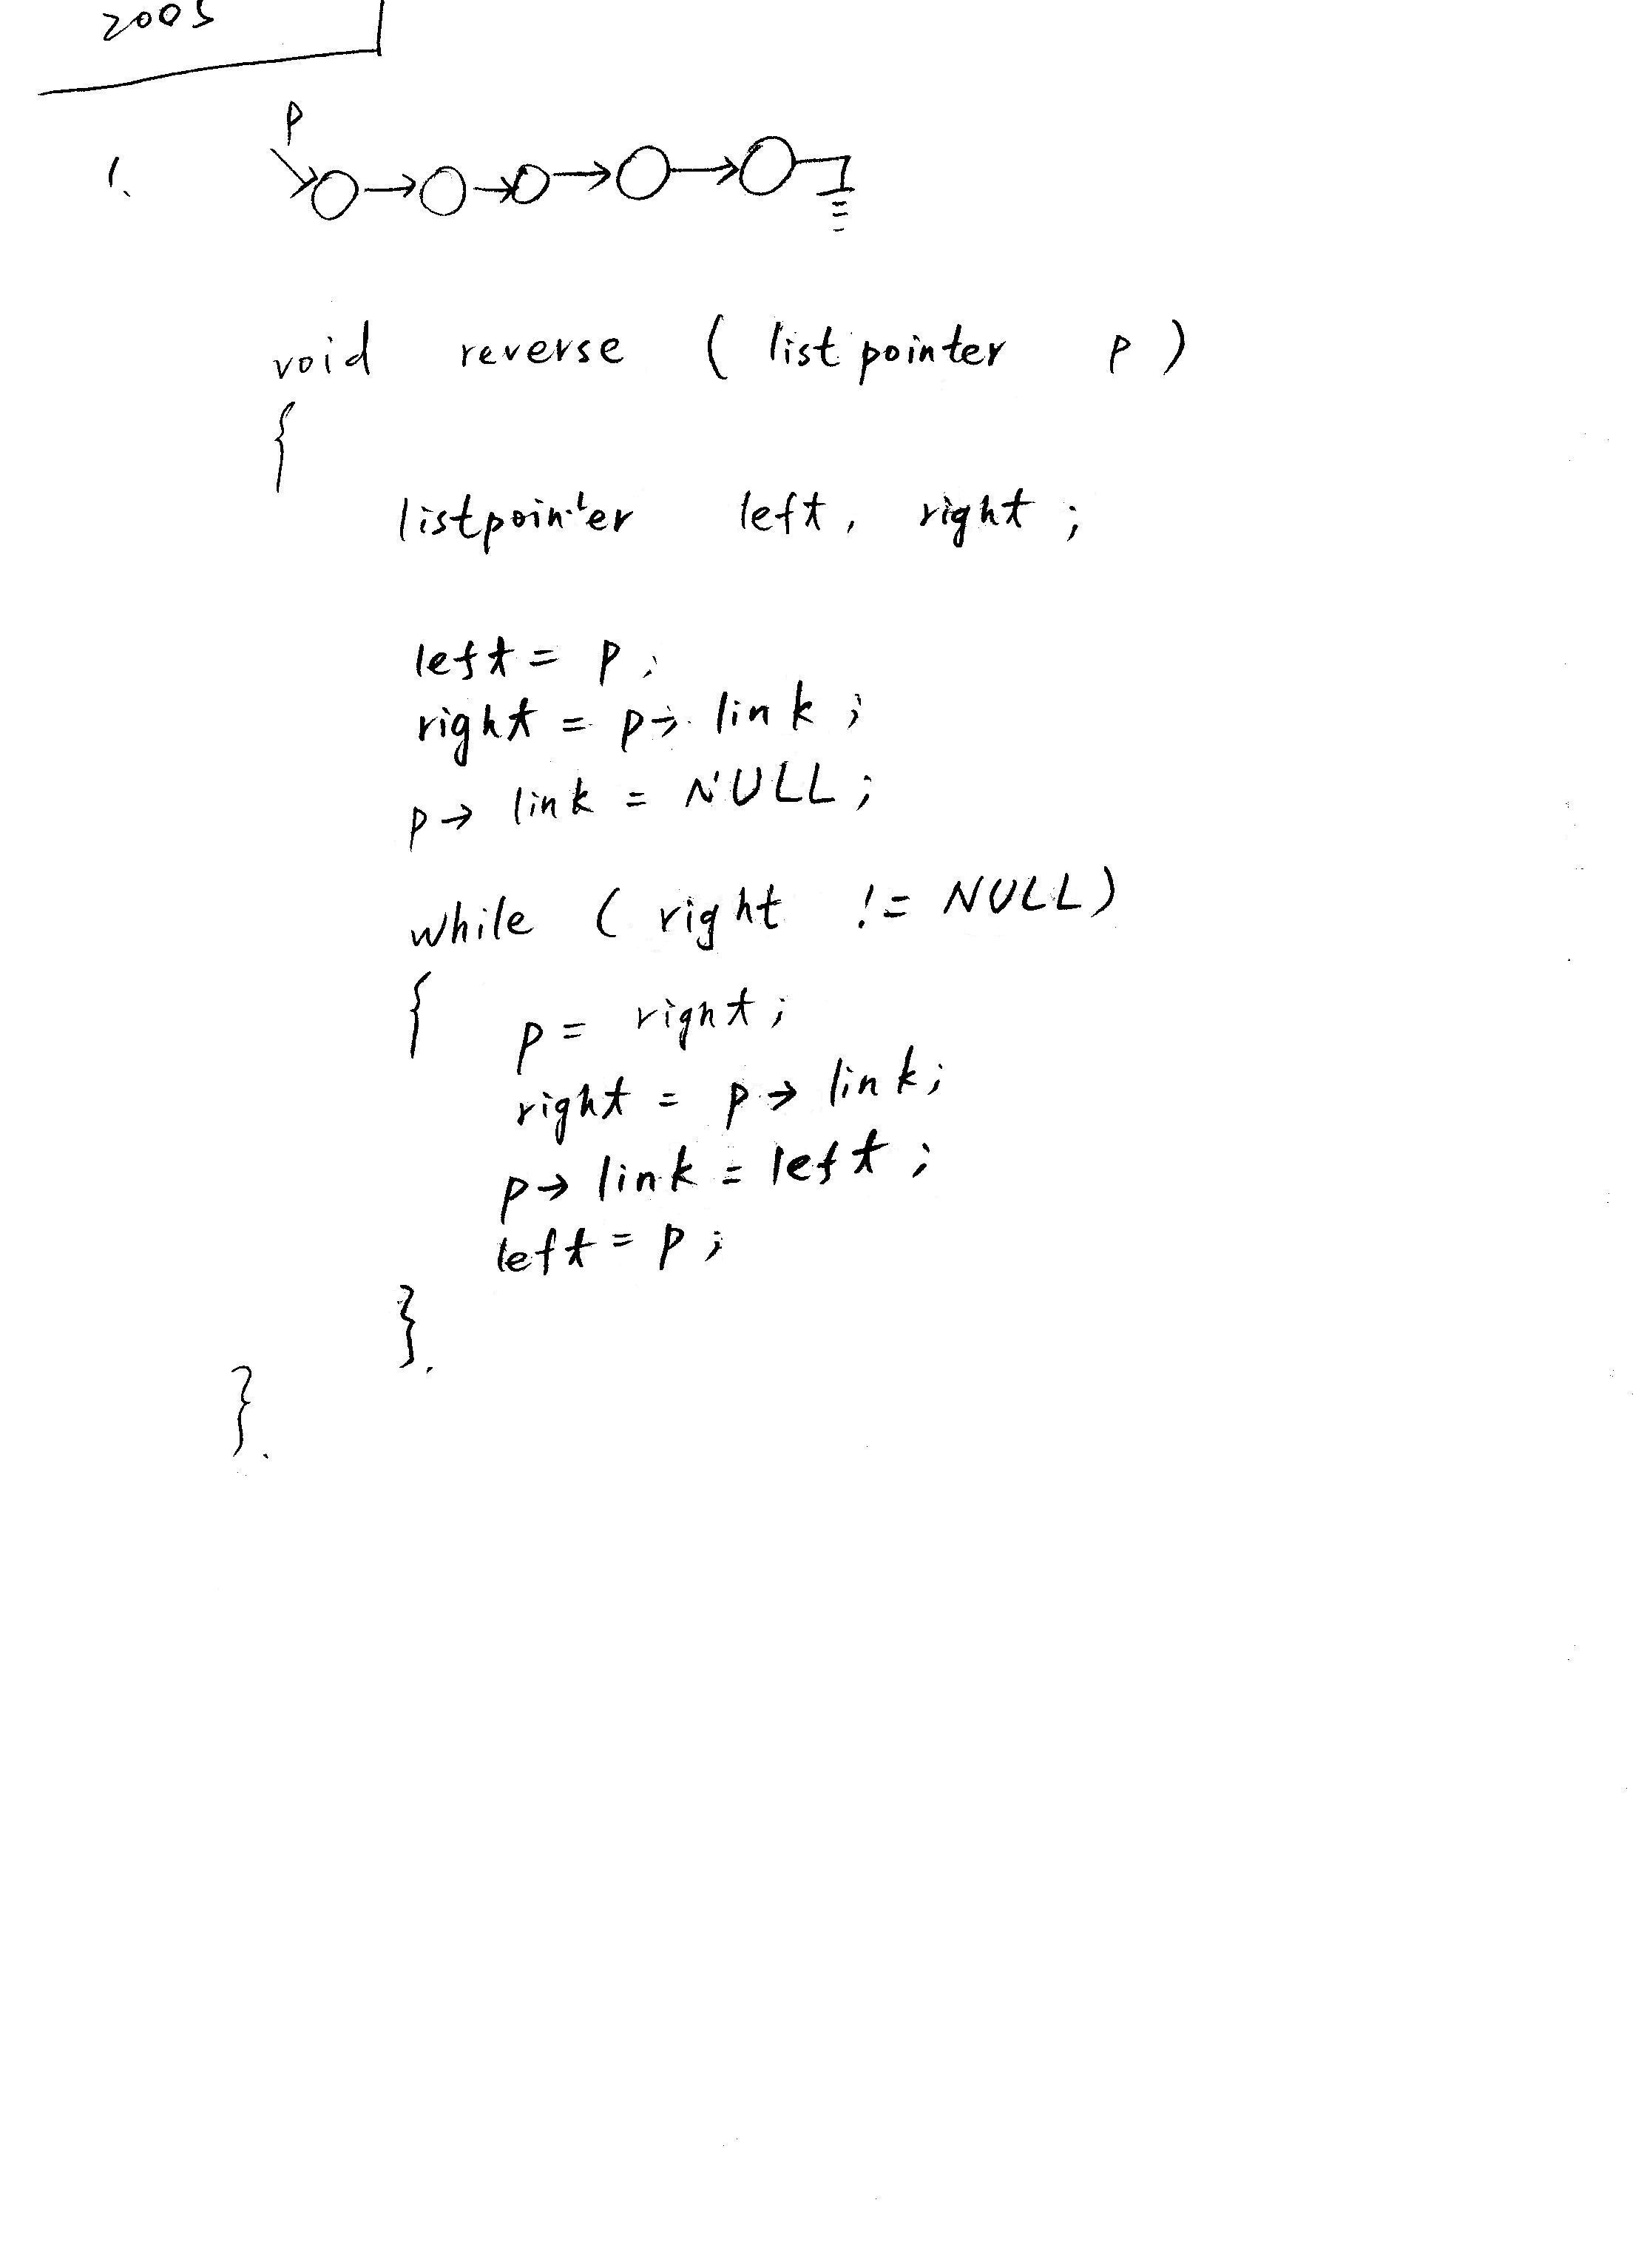 2005
p
1.
void reverse ( listpointer p )
{
listpointer left, right ;
left = p ;
right = p → link ;
p → link = NULL ;
while ( right != NULL )
{ p = right ;
right = p → link ;
p → link = left ;
left = p ;
}.
}.